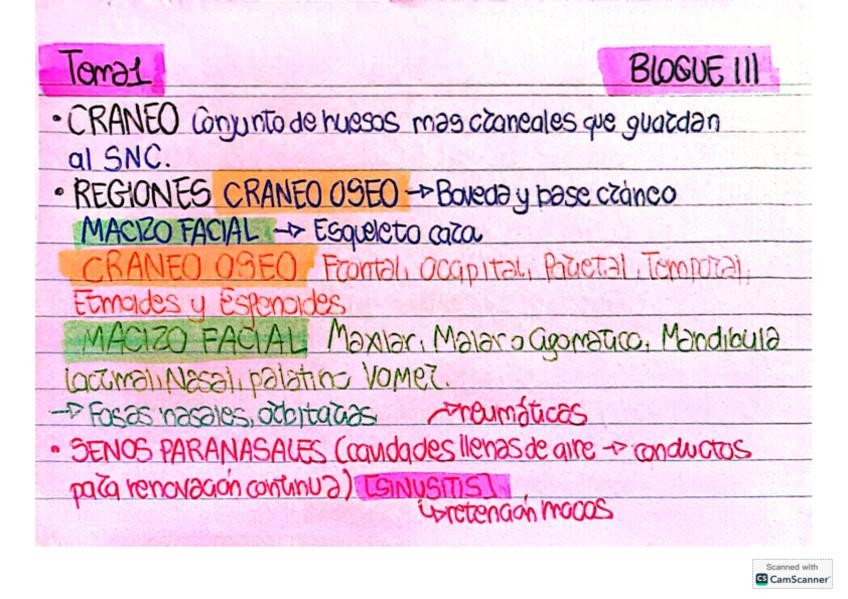 Tema 1 BLOQUE III
• CRANEO Conjunto de huesos mas craneales que guardan
al SNC.
• REGIONES CRANEO OSEO → Boveda y base cráneo
MACIZO FACIAL → Esqueleto cara
CRANEO OSEO Frontal, Occipital, Parietal, Temporal,
Etmoides y Esfenoides
MACIZO FACIAL Maxilar, Malar o cigomatico, Mandibula
lacrimal, Nasal, palatino Vomer.
→ Fosas nasales, orbitarias → neumáticas
• SENOS PARANASALES (cavidades llenas de aire → conductos
para renovación continua) [SINUSITIS]
↳ retención mocos
Scanned with
CS CamScanner